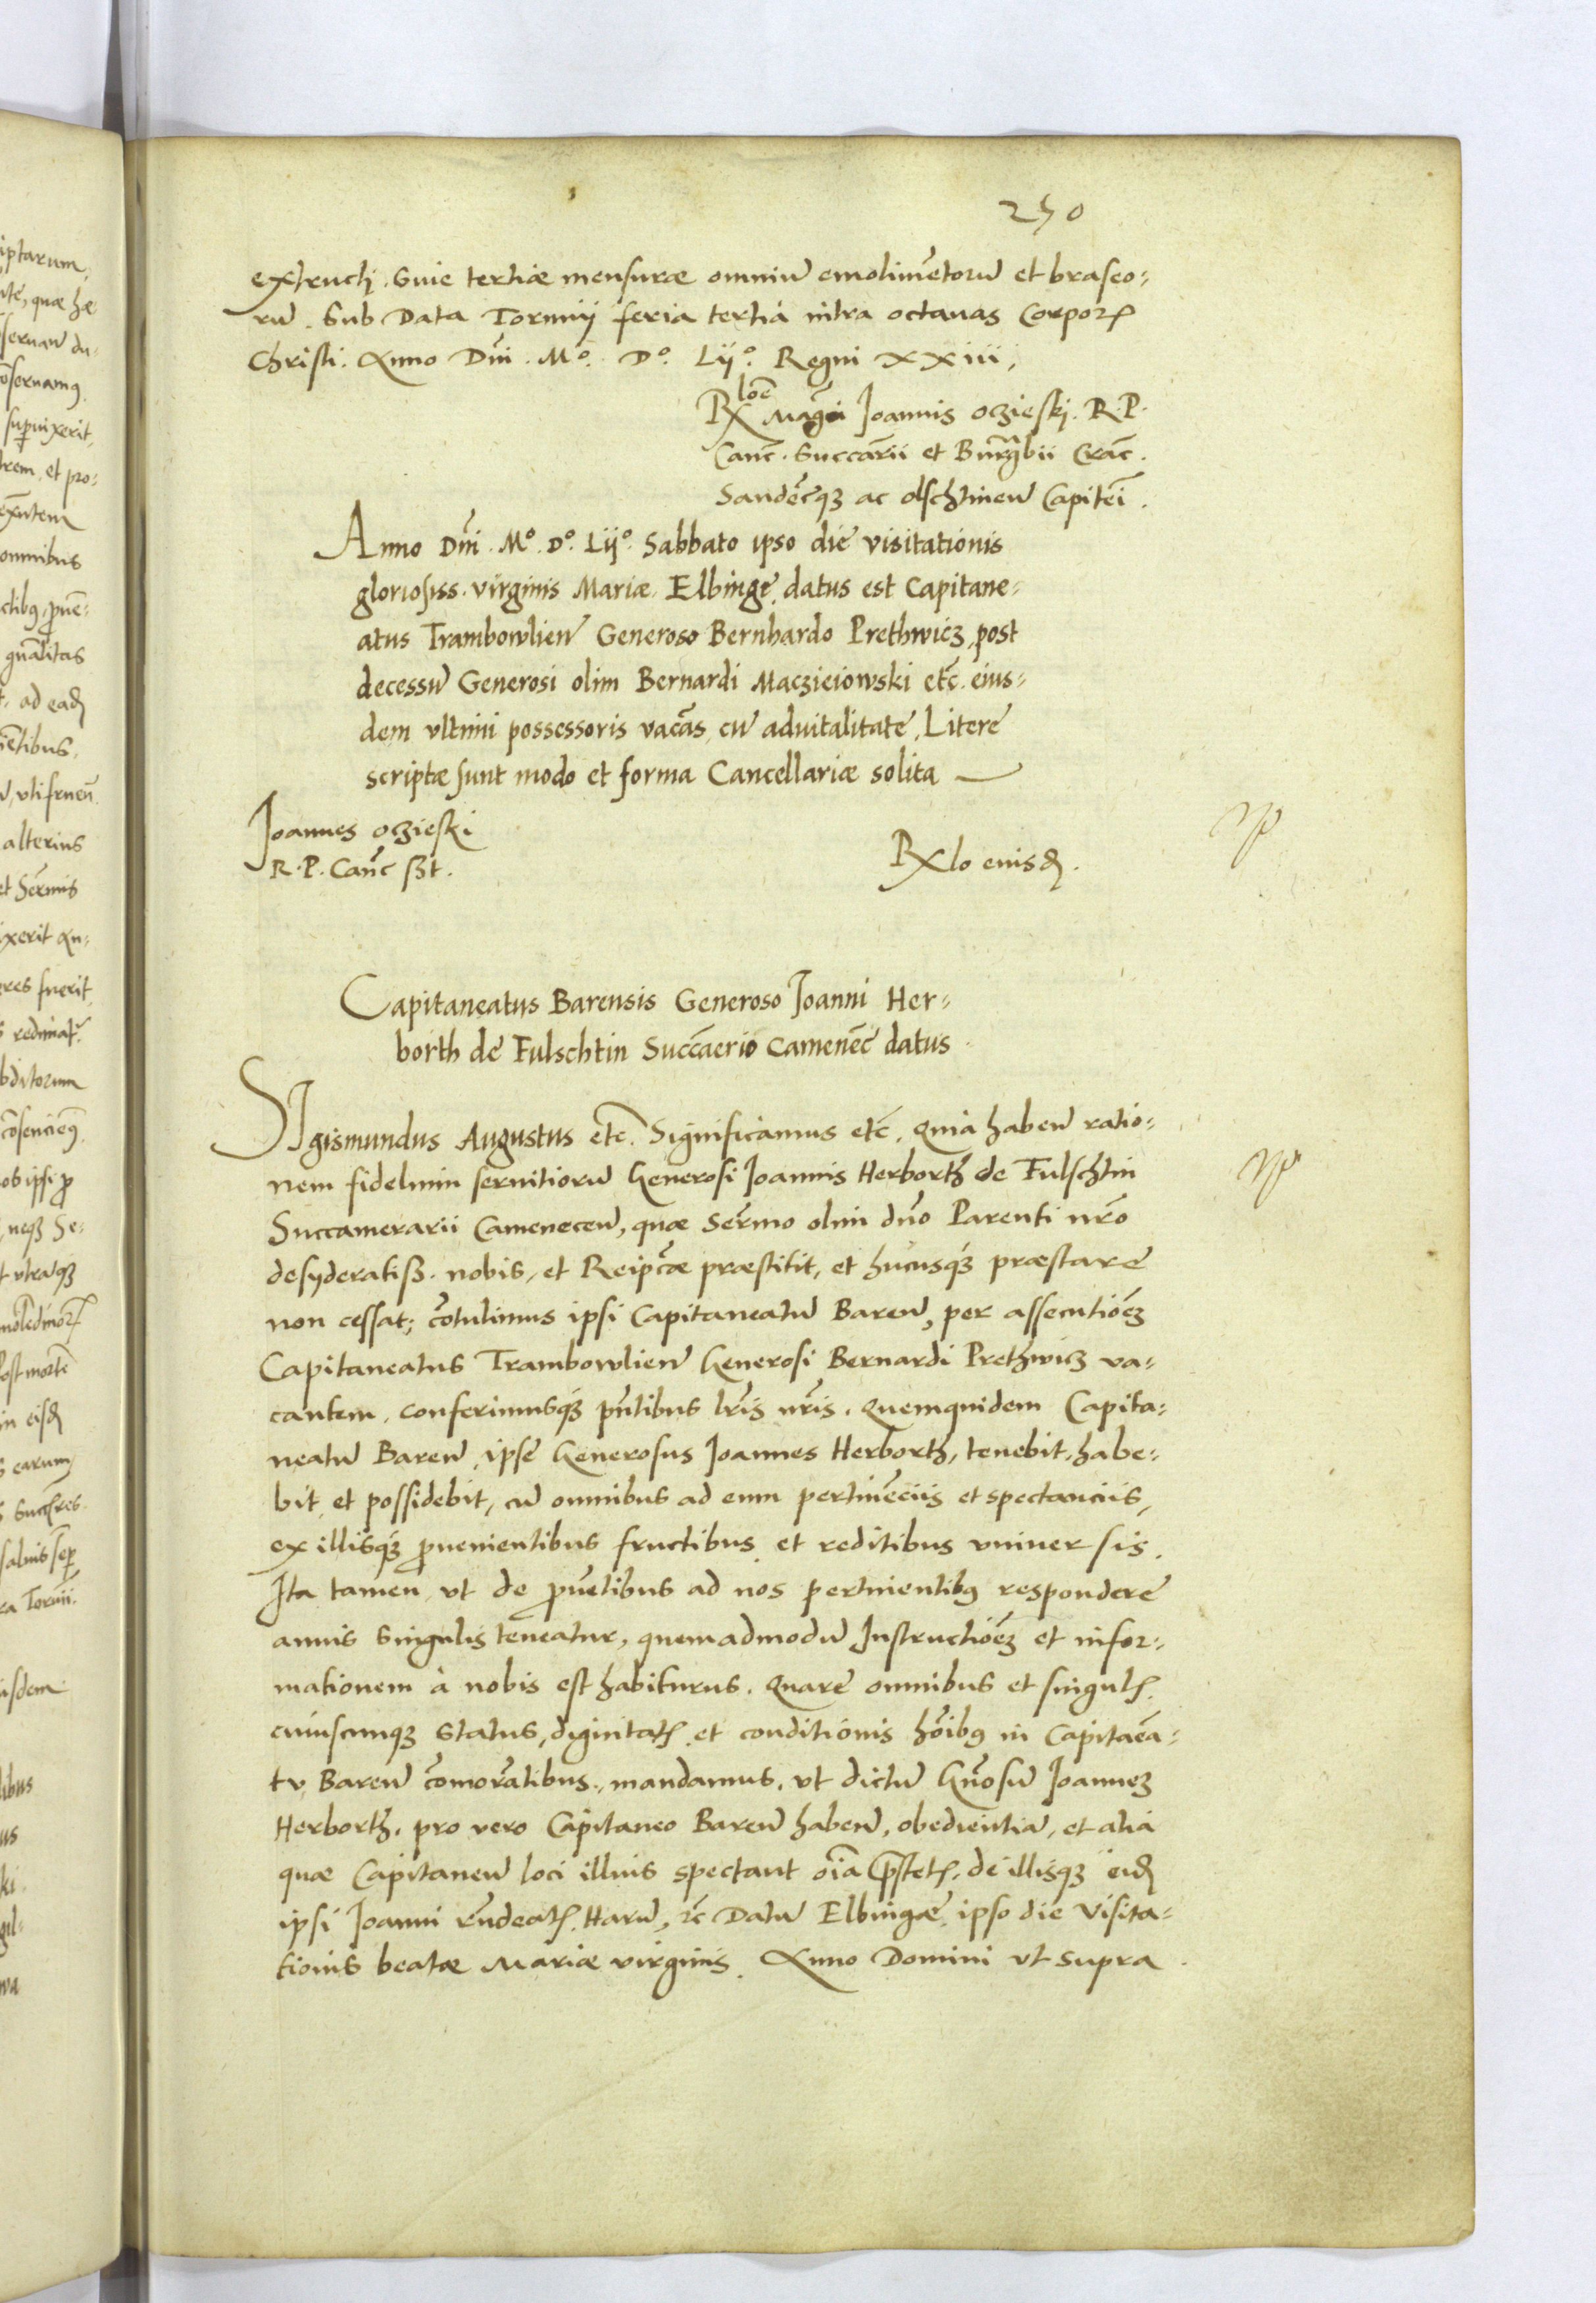 250
extructi. Siue tertiæ mensuræ omniũ emolimẽtorũ et braseo-
rũ. Sub Data Torunij feria tertia intra octauas Corporis
Christi. Anno Dñi. Mº. Dº. Lijº. Regni xxiii,
Rxloẽ Magci Ioannis oczieski. R. P.
Canc̃. Succarii et Burgrabii Crac̃.
Sandecq3 ac olschtinen̄ Capitei.
Anno Dñi. Mº. Dº. Lijº. Sabbato ipso die visitationis
gloriosiss. virginis Mariæ. Elbingę, datus est Capitane-
atus Trambowlien̄ Generoso Bernhardo Prethwicz, post
decessũ Generosi olim Bernardi Maczieiowski etc̃. eius-
dem vltimi possessoris vacãs, cũ aduitalitate, Litere
scriptæ sunt modo et forma Cancellariæ solita
Ioannes oczieski
R. P. Canc̃ sst.
Rxlo eiusd̃.
Capitaneatus Barensis Generoso Ioanni Her-
borth de Fulschtin Succaerio Camenec̃ datus.
SIgismundus Augustus etc̃. Significamus etc̃. Quia haben̄ ratio-
nem fidelium seruitiorũ Generosi Ioannis Herborth de Fulschtin
Succamerarii Camenecen̄, quæ Serm̃o olim dño Parenti nr̃o
desyderatiss. nobis, et Reipcæ præstitit, et hucusq3 præstare
non cessat; cõtulimus ipsi Capitaneatũ Baren̄, per assecutiõe3
Capitaneatus Trambowlien̄ Generosi Bernardi Prethwicz va-
cantem, conferimusq3 pñtibus lr̃is nr̃is. Quemquidem Capita-
neatũ Baren̄, ipse Generosus Ioannes Herborth, tenebit, habe-
bit, et possidebit, cũ omnibus ad eum pertinẽciis et spectanciis,
ex illisq3 prouenientibus fructibus, et reditibus vniuersis.
Ita tamen, vt de prouẽtibus ad nos pertinentibus respondere
annis singulis teneatur, quemadmodũ Instructiõe3 et infor-
mationem à nobis est habiturus. Quare omnibus et singulis
cuiuscunq3 status, dignitatis, et conditionis hõibus in Capitaẽa-
tu, Baren̄ cõmorãtibus, mandamus, vt dictũ Gñosũ Ioanne3
Herborth, pro vero Capitaneo Baren̄ haben̄, obedientiã, et alia
quæ Capitaneũ loci illius spectant oĩa præstetis, de illisq3 eid̃
ipsi Ioanni rñdeatis. Harũ, rc̃ Datũ Elbingæ, ipso die Visita-
tionis beatæ Mariæ virginis. Anno Domini vt supra.